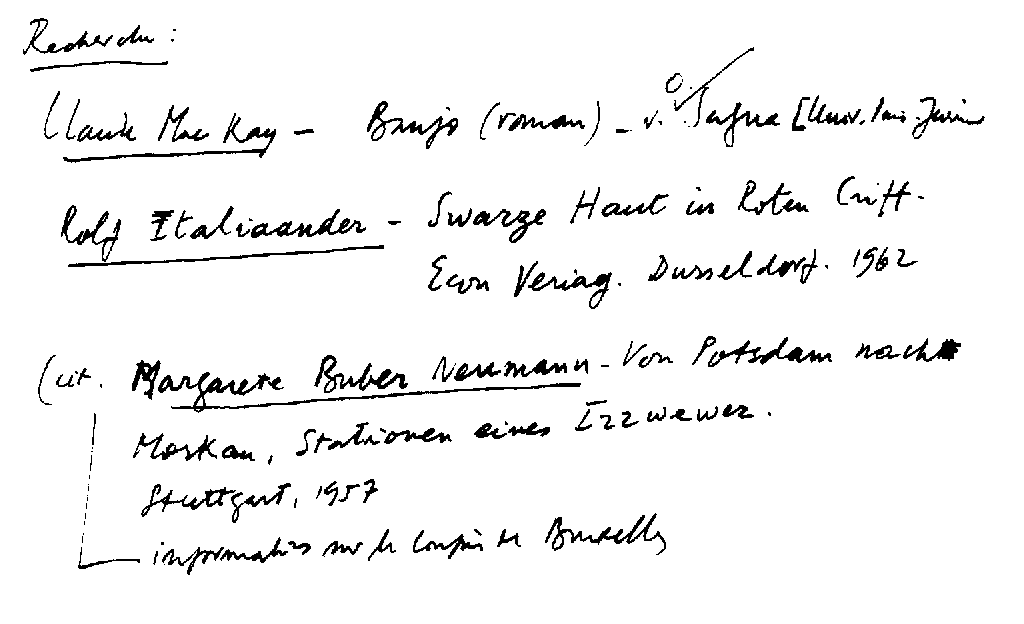 Recherche :
Claude Mac Kay – Banjo (roman) – v. Sagna [Univ.
Rolf Italiaander – Swarze Haut in Roten Griff.
Econ Veriag. Dusseldorf. 1962
(cit. Margarete Buber Neumann – Von Potsdam nach
Moskau, Stationen eines Irrwewer.
Stuttgart, 1957
informations sur le Congrès de Bruxelles